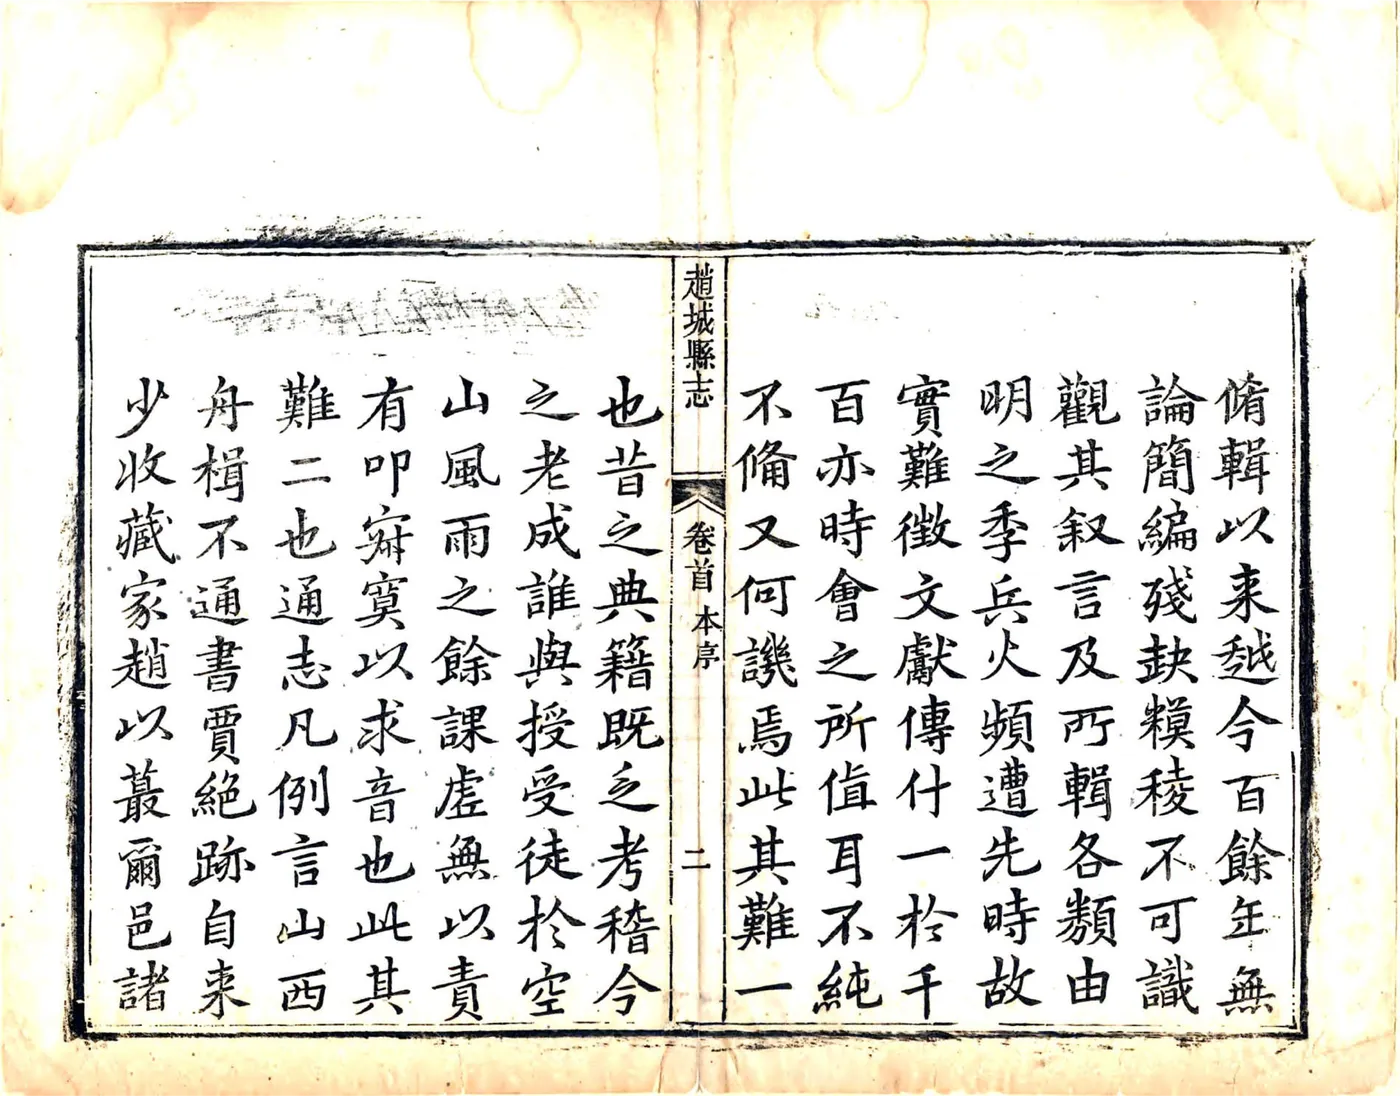 脩輯以来越今百餘年無
論簡編殘缺糢稜不可識
觀其叙言及所輯各類由
明之季兵火頻遭先時故
實難徵文獻傳什一於千
百亦時會之所值耳不純
不備又何譏焉此其難一
趙城縣志
卷首 本序
二
也昔之典籍既乏考稽今
之老成誰與授受徒於空
山風雨之餘課虛無以責
有叩寂寞以求音也此其
難二也通志凡例言山西
舟楫不通書賈絕跡自来
少收藏家趙以蕞爾邑諸